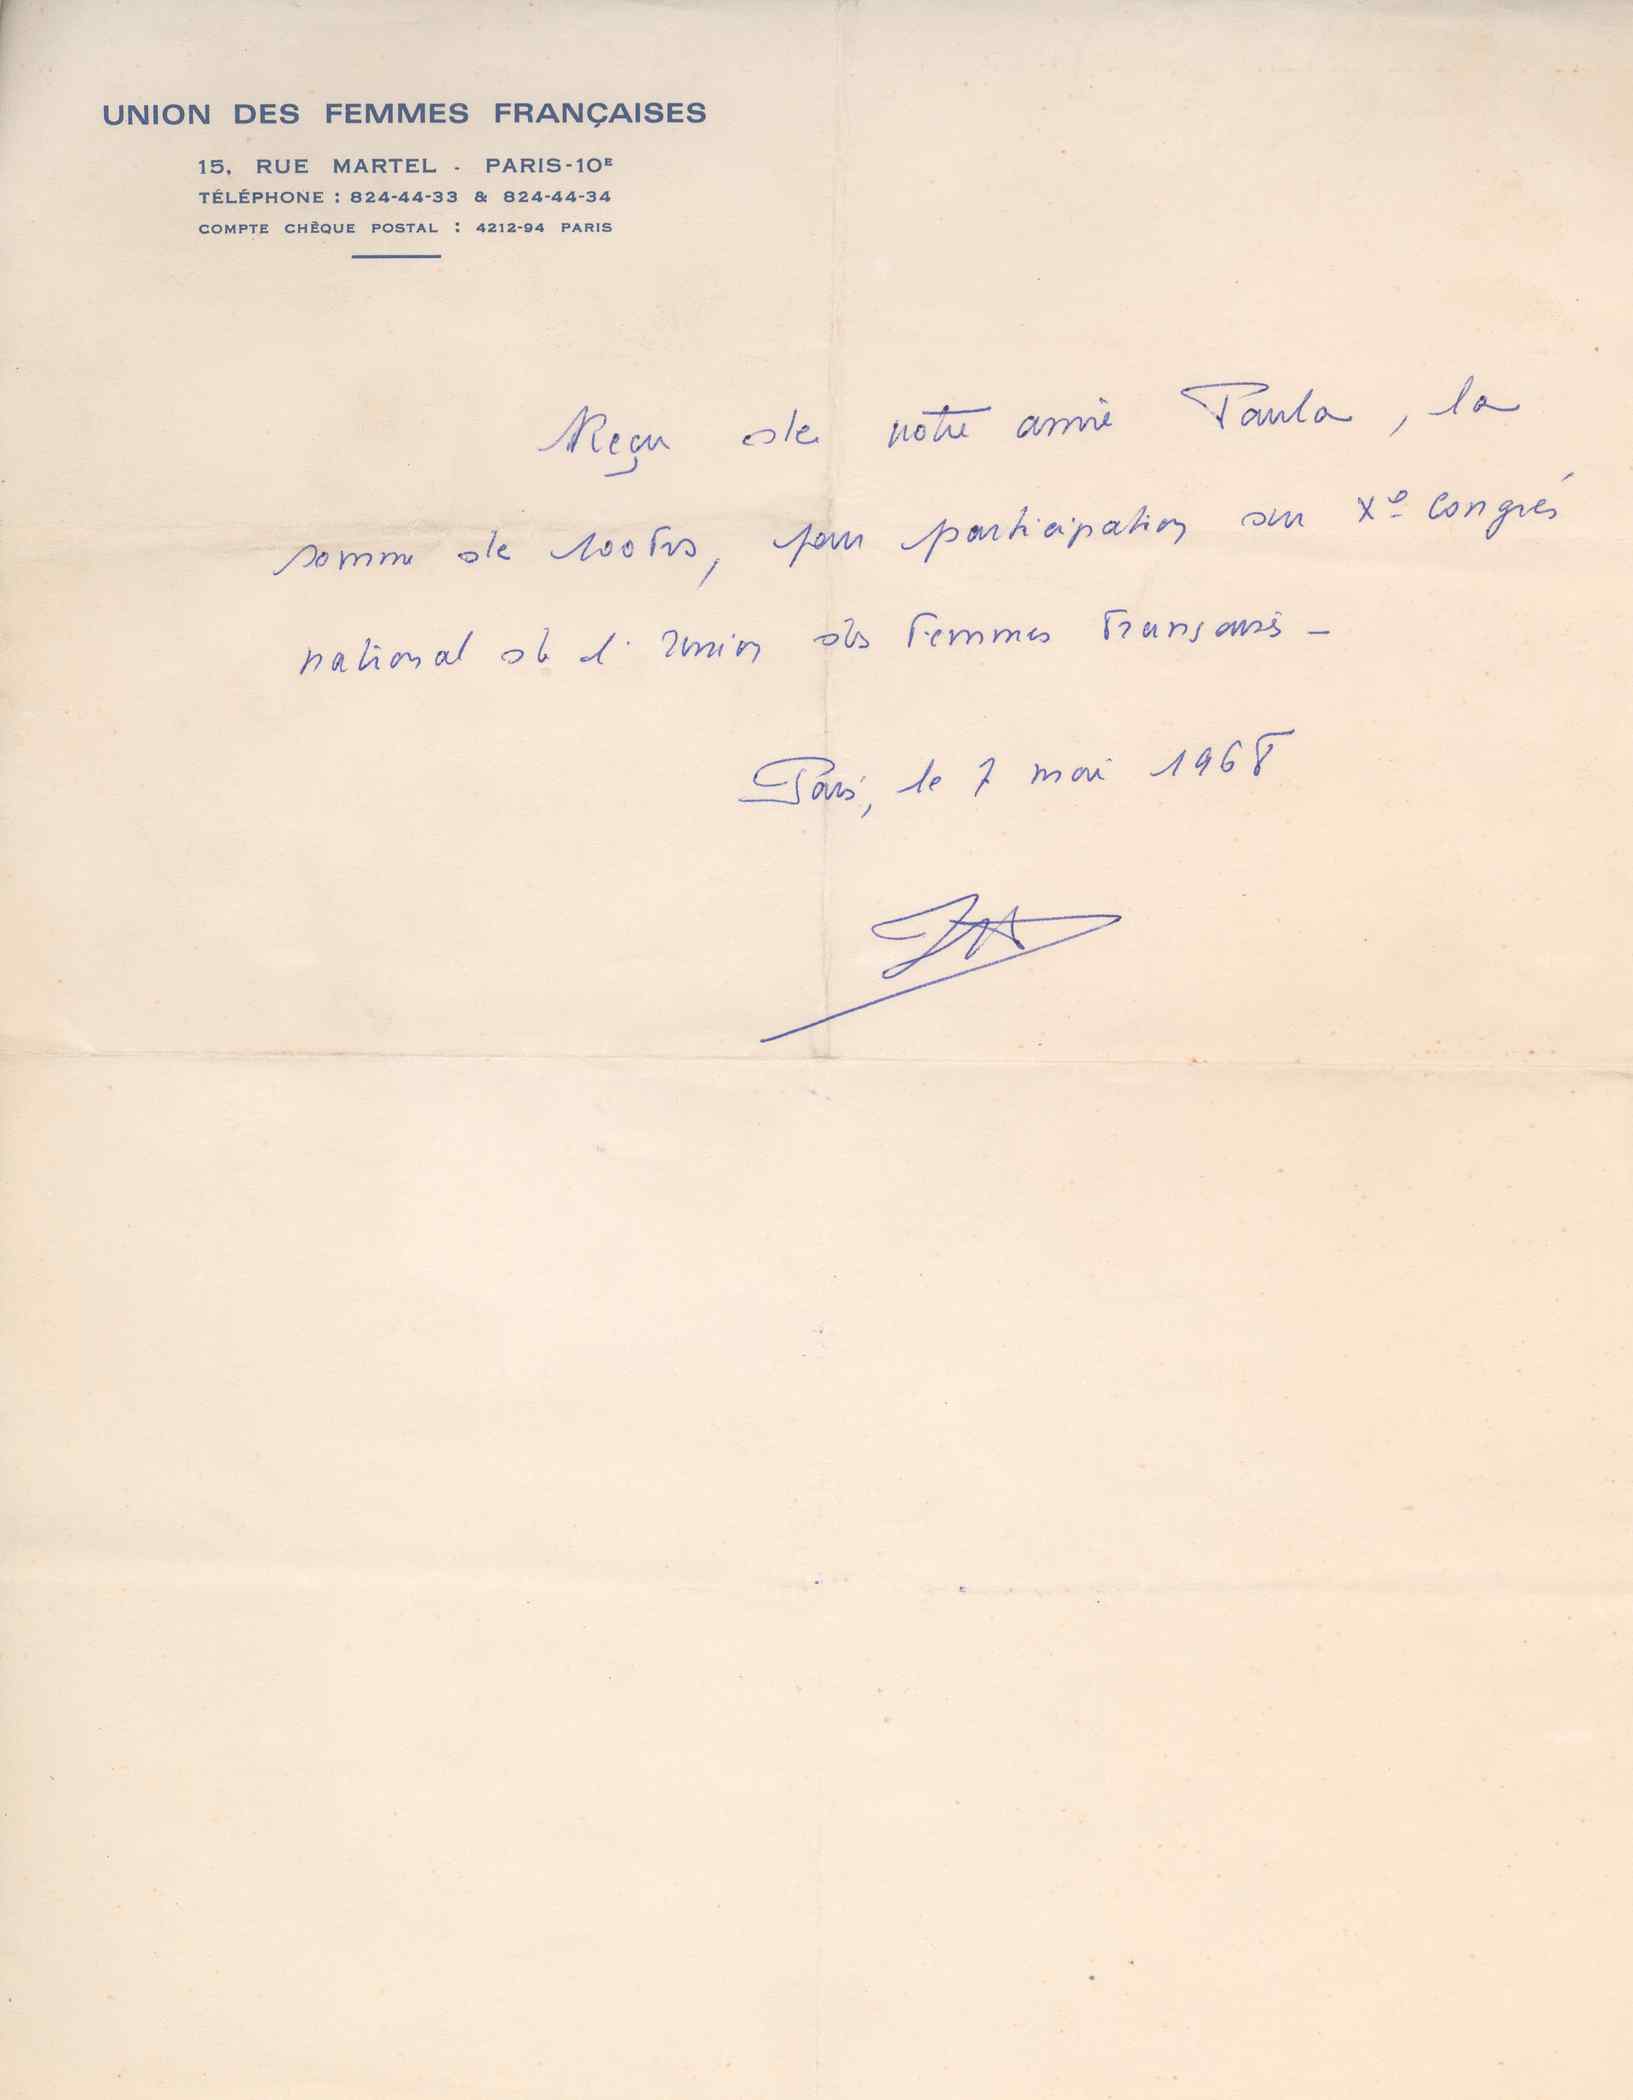 UNION DES FEMMES FRANÇAISES
15, RUE MARTEL - PARIS-10E
TÉLÉPHONE : 824-44-33 & 824-44-34
COMPTE CHÈQUE POSTAL : 4212-94 PARIS
Reçu de notre amie Paula, la
somme de 100Frs, pour participation au Xe Congrés
national de l'Union des Femmes Françaises -
Paris, le 7 mai 1968